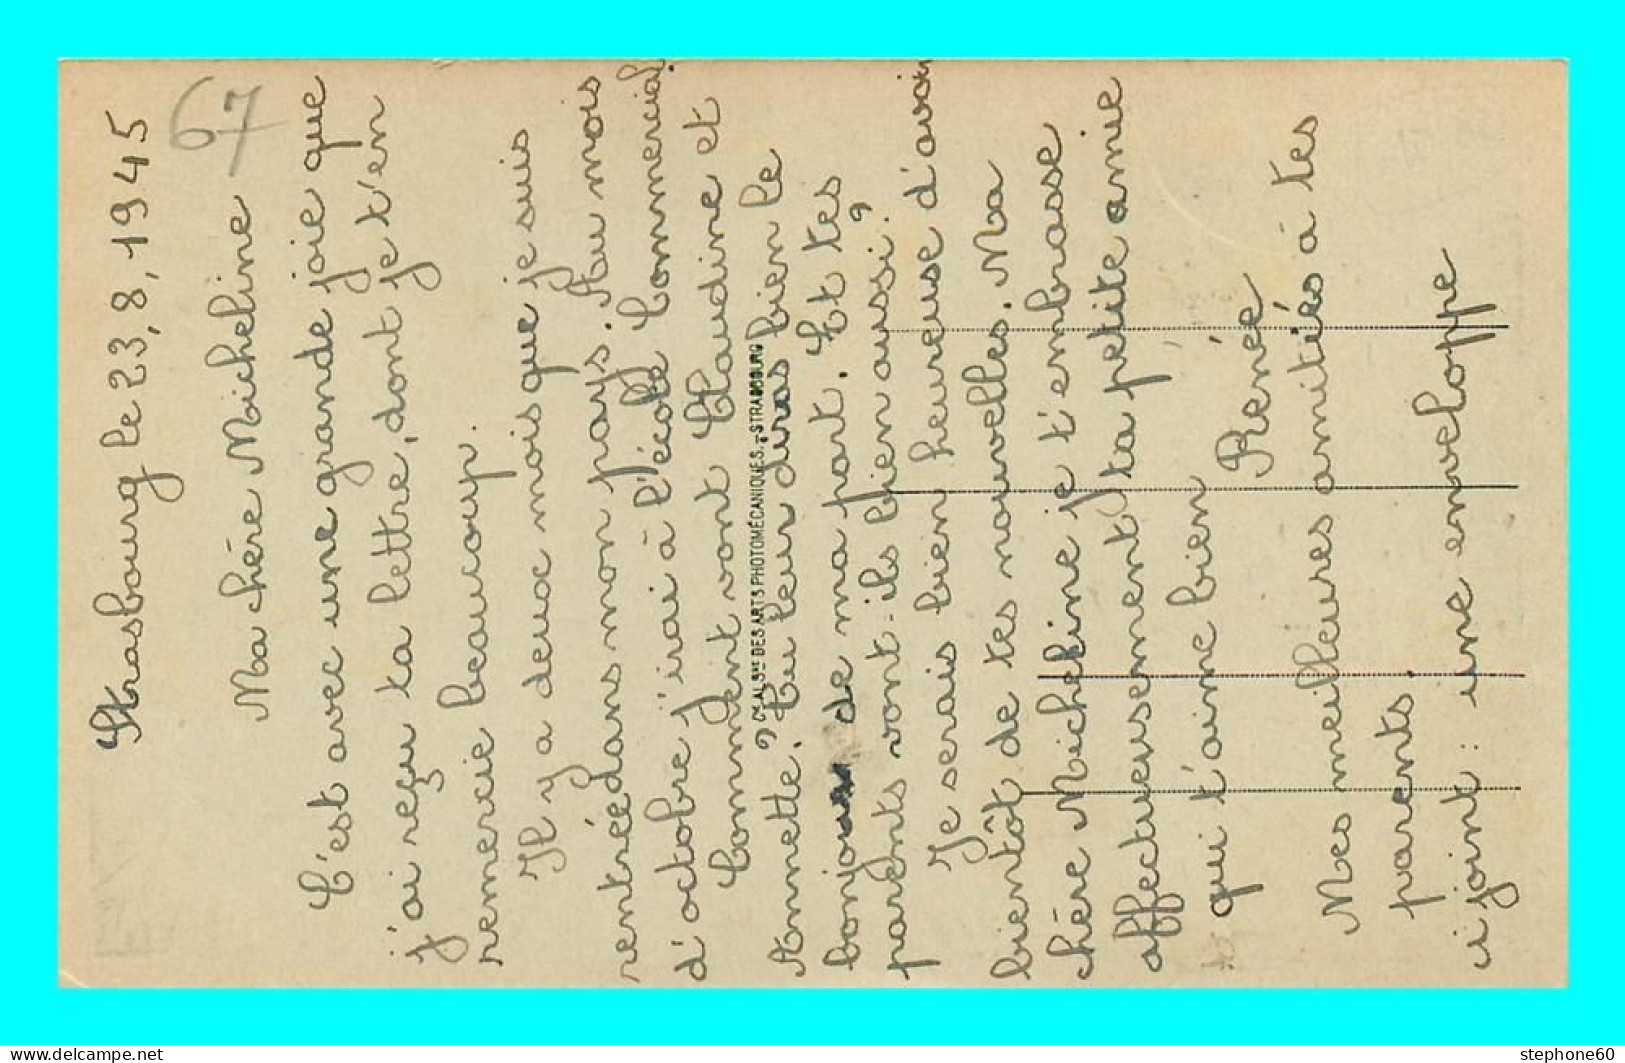 Strasbourg le 23, 8, 1945
67
Ma chère Micheline
C'est avec une grande joie que
j'ai reçu ta lettre, dont je t'en
remercie beaucoup.
Il y a deux mois que je suis
rentrée dans mon pays. Au mois
d'octobre j'irai à l'école Commercial.
Comment vont Claudine et
Annette? Tu leur diras bien le
bonjour de ma part. Et tes
parents vont-ils bien aussi?
Je serais bien heureuse d'avoir
bientôt de tes nouvelles. Ma
chère Micheline je t'embrasse
affectueusement ta petite amie
qui t'aime bien
Renée
Mes meilleures amitiés à tes
parents.
ci joint: une enveloppe
Cie ALSne DES ARTS PHOTOMÉCANIQUES.-STRASBOURG
stephone60